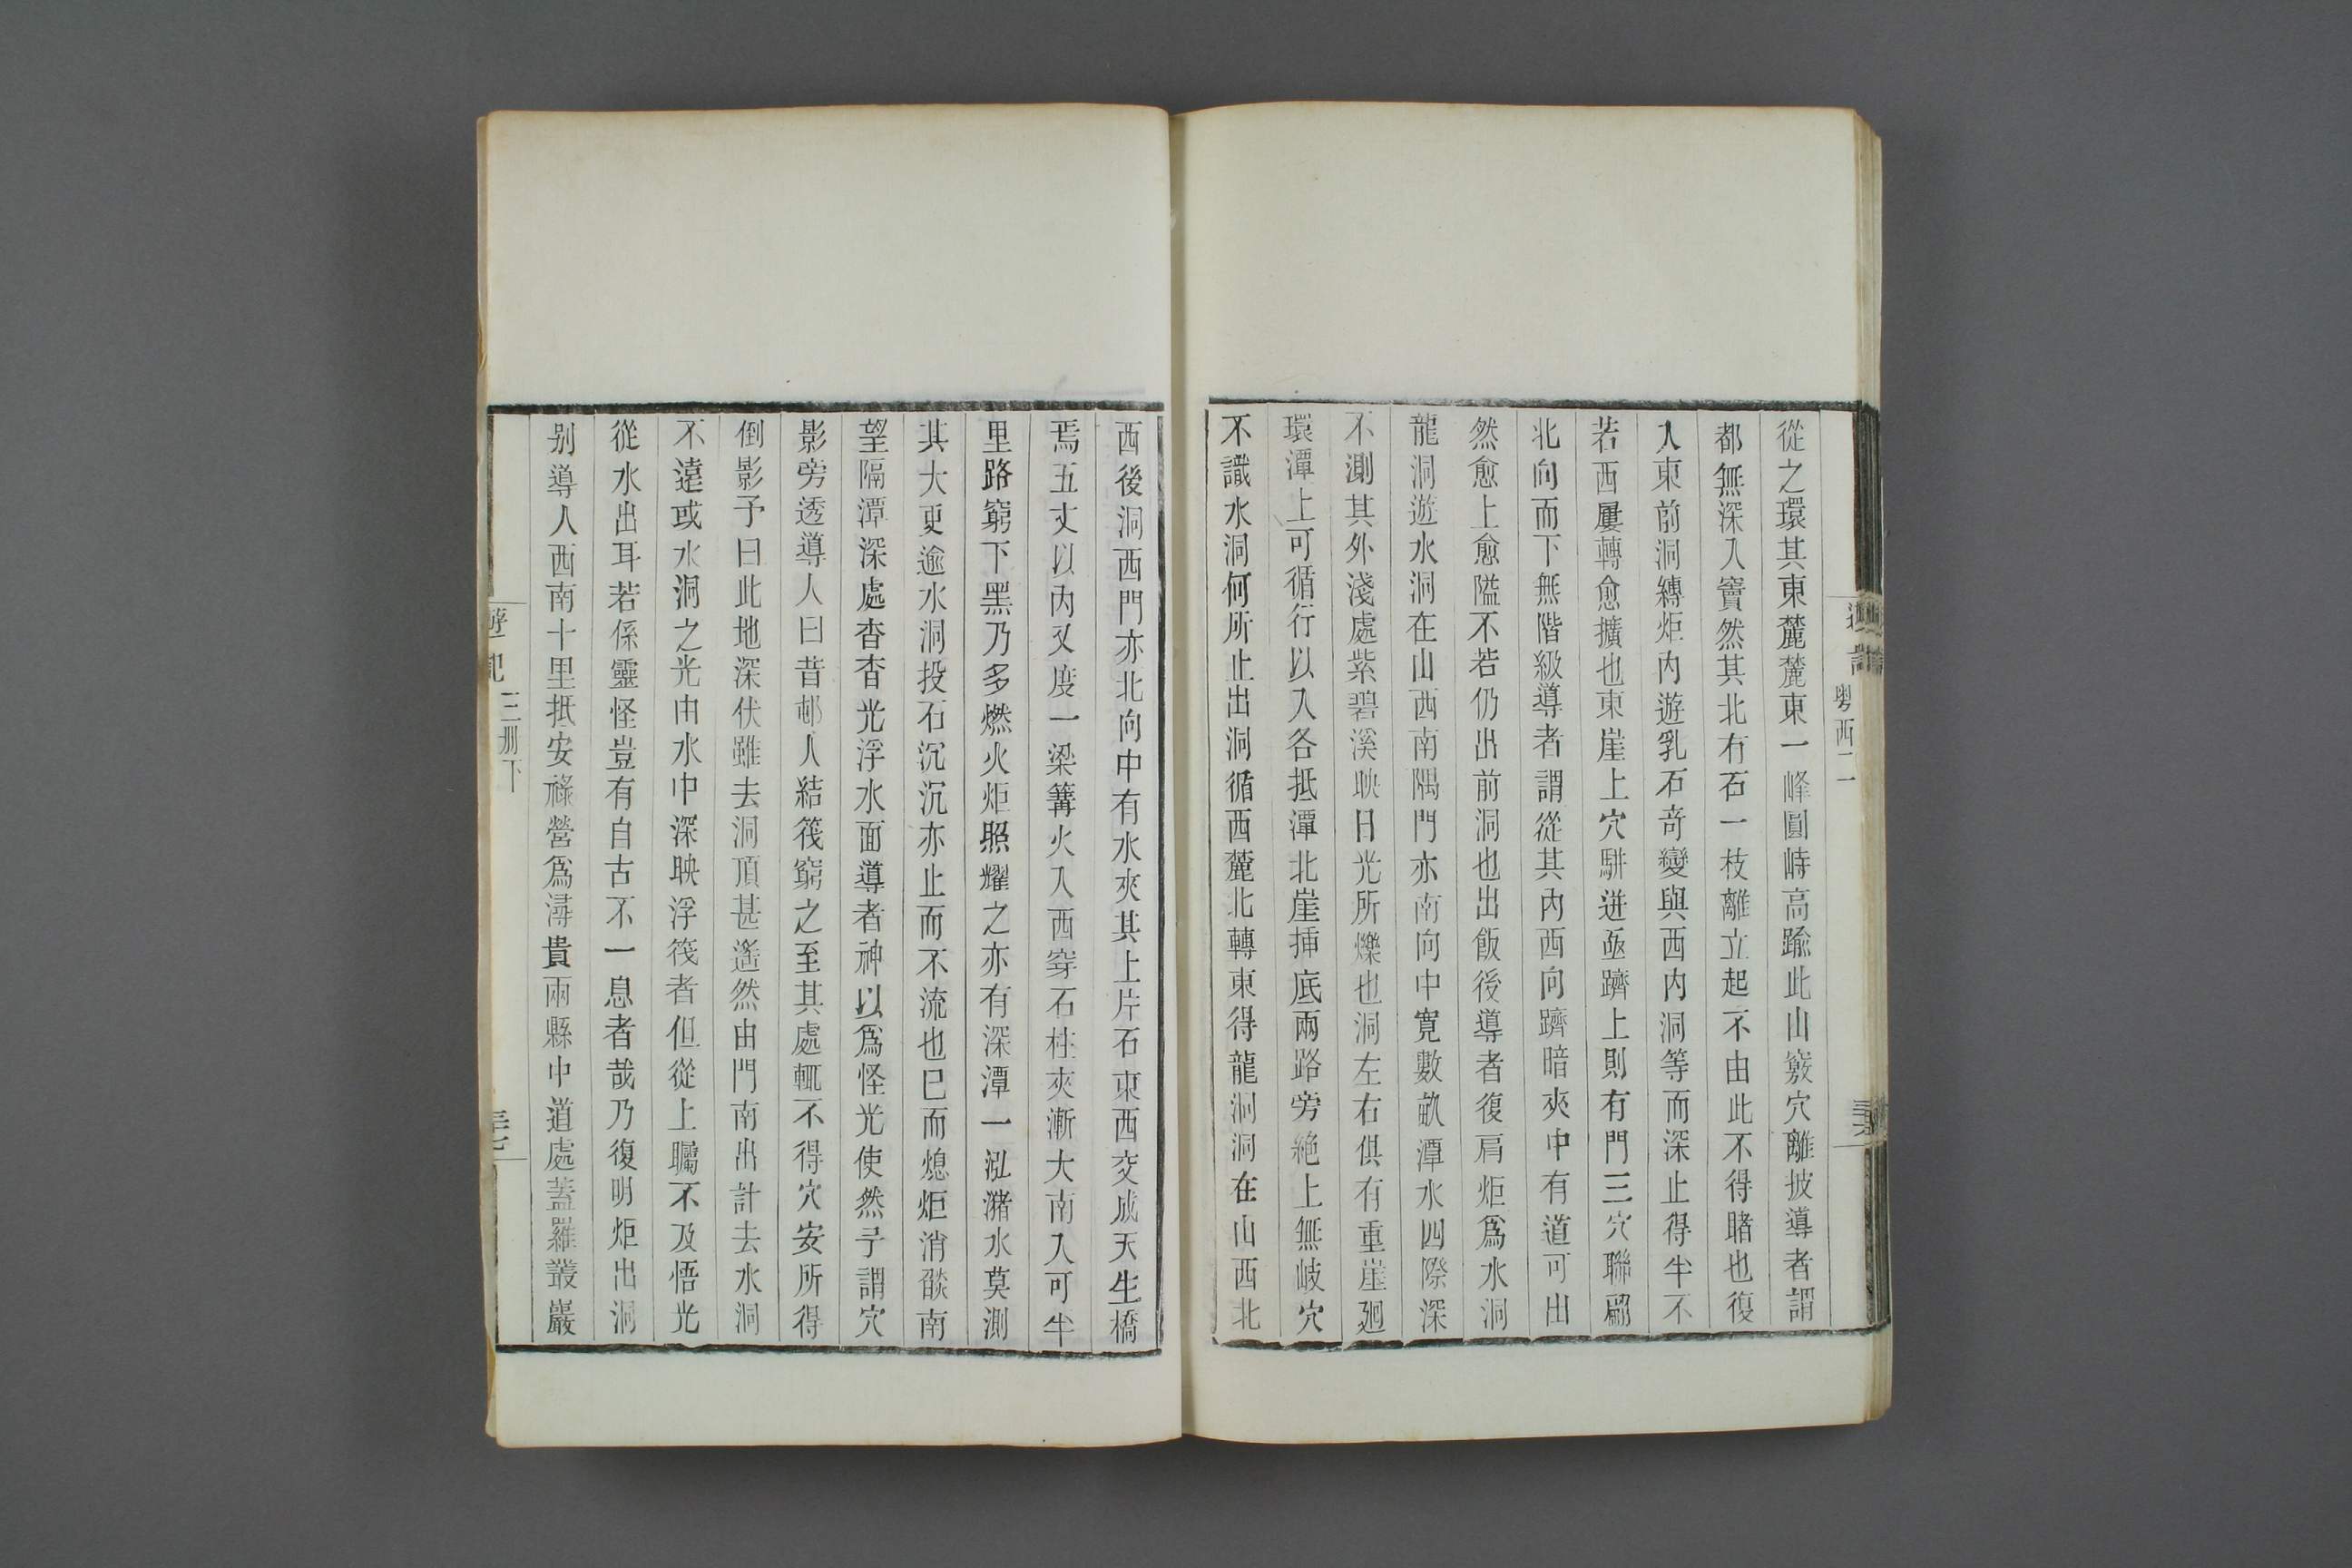 粤西二
從之環其東麓麓東一峰圓峙高踰此山竅穴離披導者謂
都無深入竇然其北有石一枝離立起不由此不得睹也復
入東前洞縛炬內遊乳石奇變與西內洞等而深止得半不
若西屢轉愈擴也東崖上穴騈迸亟躋上則有門三穴聯翩
北向而下無階級導者謂從其內西向躋暗夾中有道可出
然愈上愈隘不若仍出前洞也出飯後導者復肩炬爲水洞
龍洞遊水洞在山西南隅門亦南向中寛數畝潭水四際深
不測其外淺處紫碧溪映日光所爍也洞左右俱有重崖廻
環潭上可循行以入各抵潭北崖揷底兩路旁絶上無岐穴
不識水洞何所止出洞循西麓北轉東得龍洞洞在山西北
西後洞西門亦北向中有水夾其上片石東西交成天生橋
焉五丈以內又度一梁篝火入西穿石柱夾漸大南入可半
里路窮下黑乃多燃火炬照耀之亦有深潭一泓瀦水莫測
其大更逾水洞投石沉沉亦止而不流也已而熄炬消燄南
望隔潭深處杳杳光浮水面導者神以爲怪光使然予謂穴
影旁透導人曰昔邨人結筏窮之至其處輒不得穴安所得
倒影予曰此地深伏雖去洞頂甚遙然由門南出計去水洞
不遠或水洞之光由水中深映浮筏者但從上矚不及悟光
從水出耳若係靈怪豈有自古不一息者哉乃復明炬出洞
别導人西南十里抵安祿營爲潯貴兩縣中道處蓋羅叢巖
遊記
三册下
三七